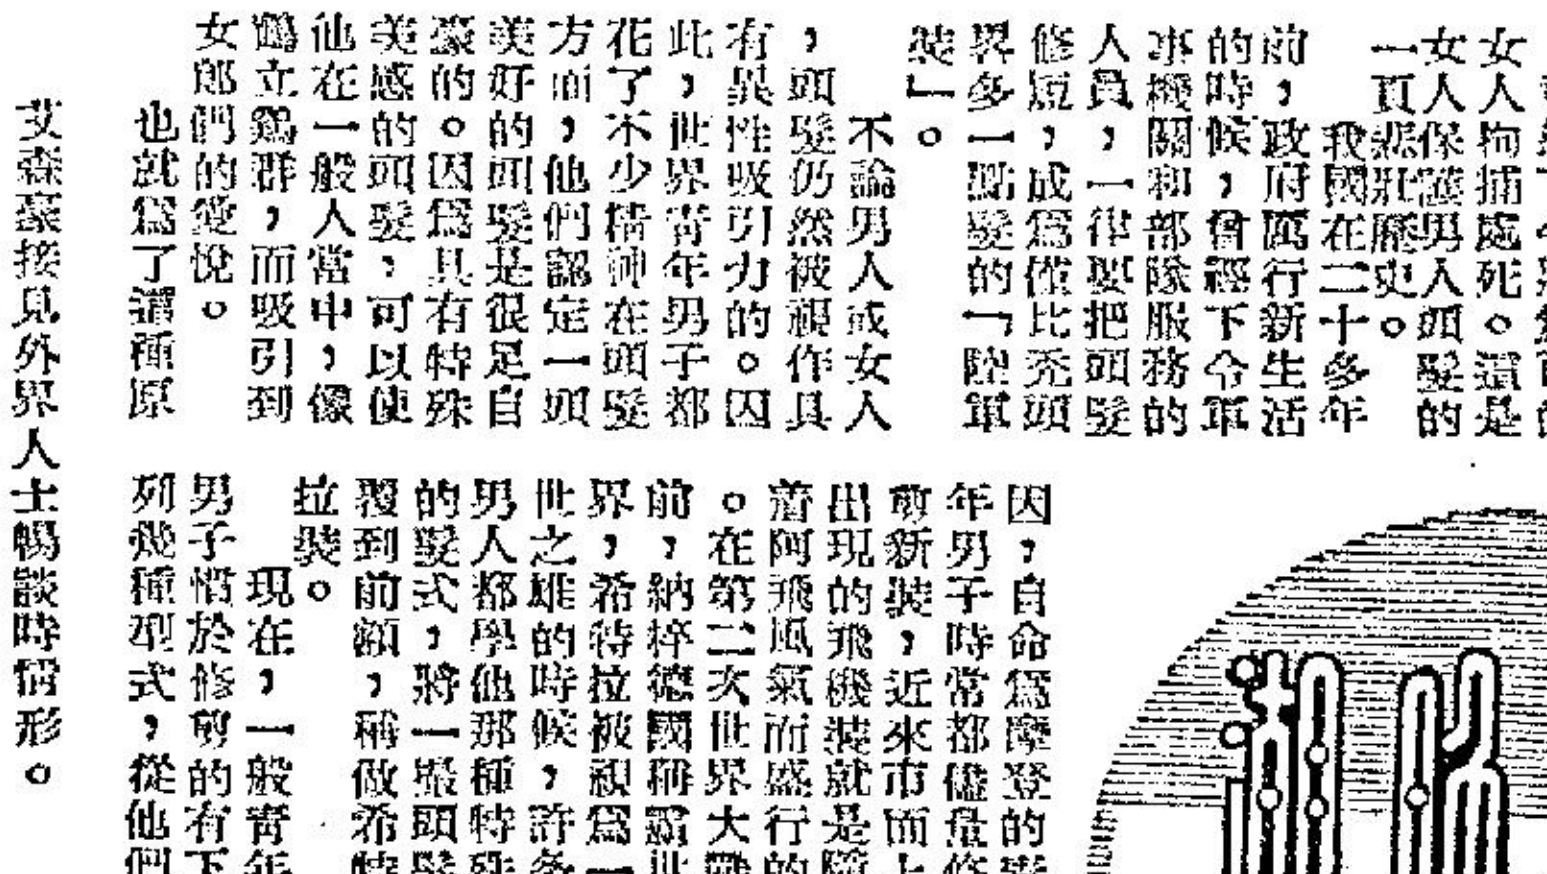 女人拘捕處死。還是
女人保護男人頭髮的
一頁悲壯歷史。
我國在二十多年
前,政府厲行新生活
的時候,曾經下令軍
事機關和部隊服務的
人員,一律要把頭髮
修短,成爲僅比禿頭
界多一點髮的「陸軍
裝」。
不論男人或女人
,頭髮仍然被視作具
有異性吸引力的。因
此,世界靑年男子都
花了不少精神在頭髮
方面,他們認定一頭
美好的頭髮是很足自
豪的。因爲具有特殊
美感的頭髮,可以使
他在一般人當中,像
鶴立鷄群,而吸引到
女郎們的愛悅。
也就爲了這種原
因,自命爲摩登的靑
年男子時常都儘量修
剪新裝,近來市面上
出現的飛機裝就是隨
着阿飛風氣而盛行的
。在第二次世界大戰
前,納粹德國稱霸世
界,希特拉被視爲一
世之雄的時候,許多
男人都學他那種特殊
的髮式,將一撮頭髮
覆到前額,稱做希特
拉裝。
現在,一般靑年
男子慣於修剪的有下
列幾種型式,從他們
艾森豪接見外界人士暢談時情形。